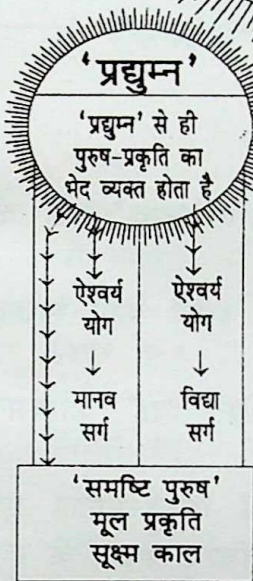 'प्रद्युम्न'
'प्रद्युम्न' से ही
पुरुष-प्रकृति का
भेद व्यक्त होता है
ऐश्वर्य योग
ऐश्वर्य योग
मानव सर्ग
विद्या सर्ग
'समष्टि पुरुष'
मूल प्रकृति
सूक्ष्म काल